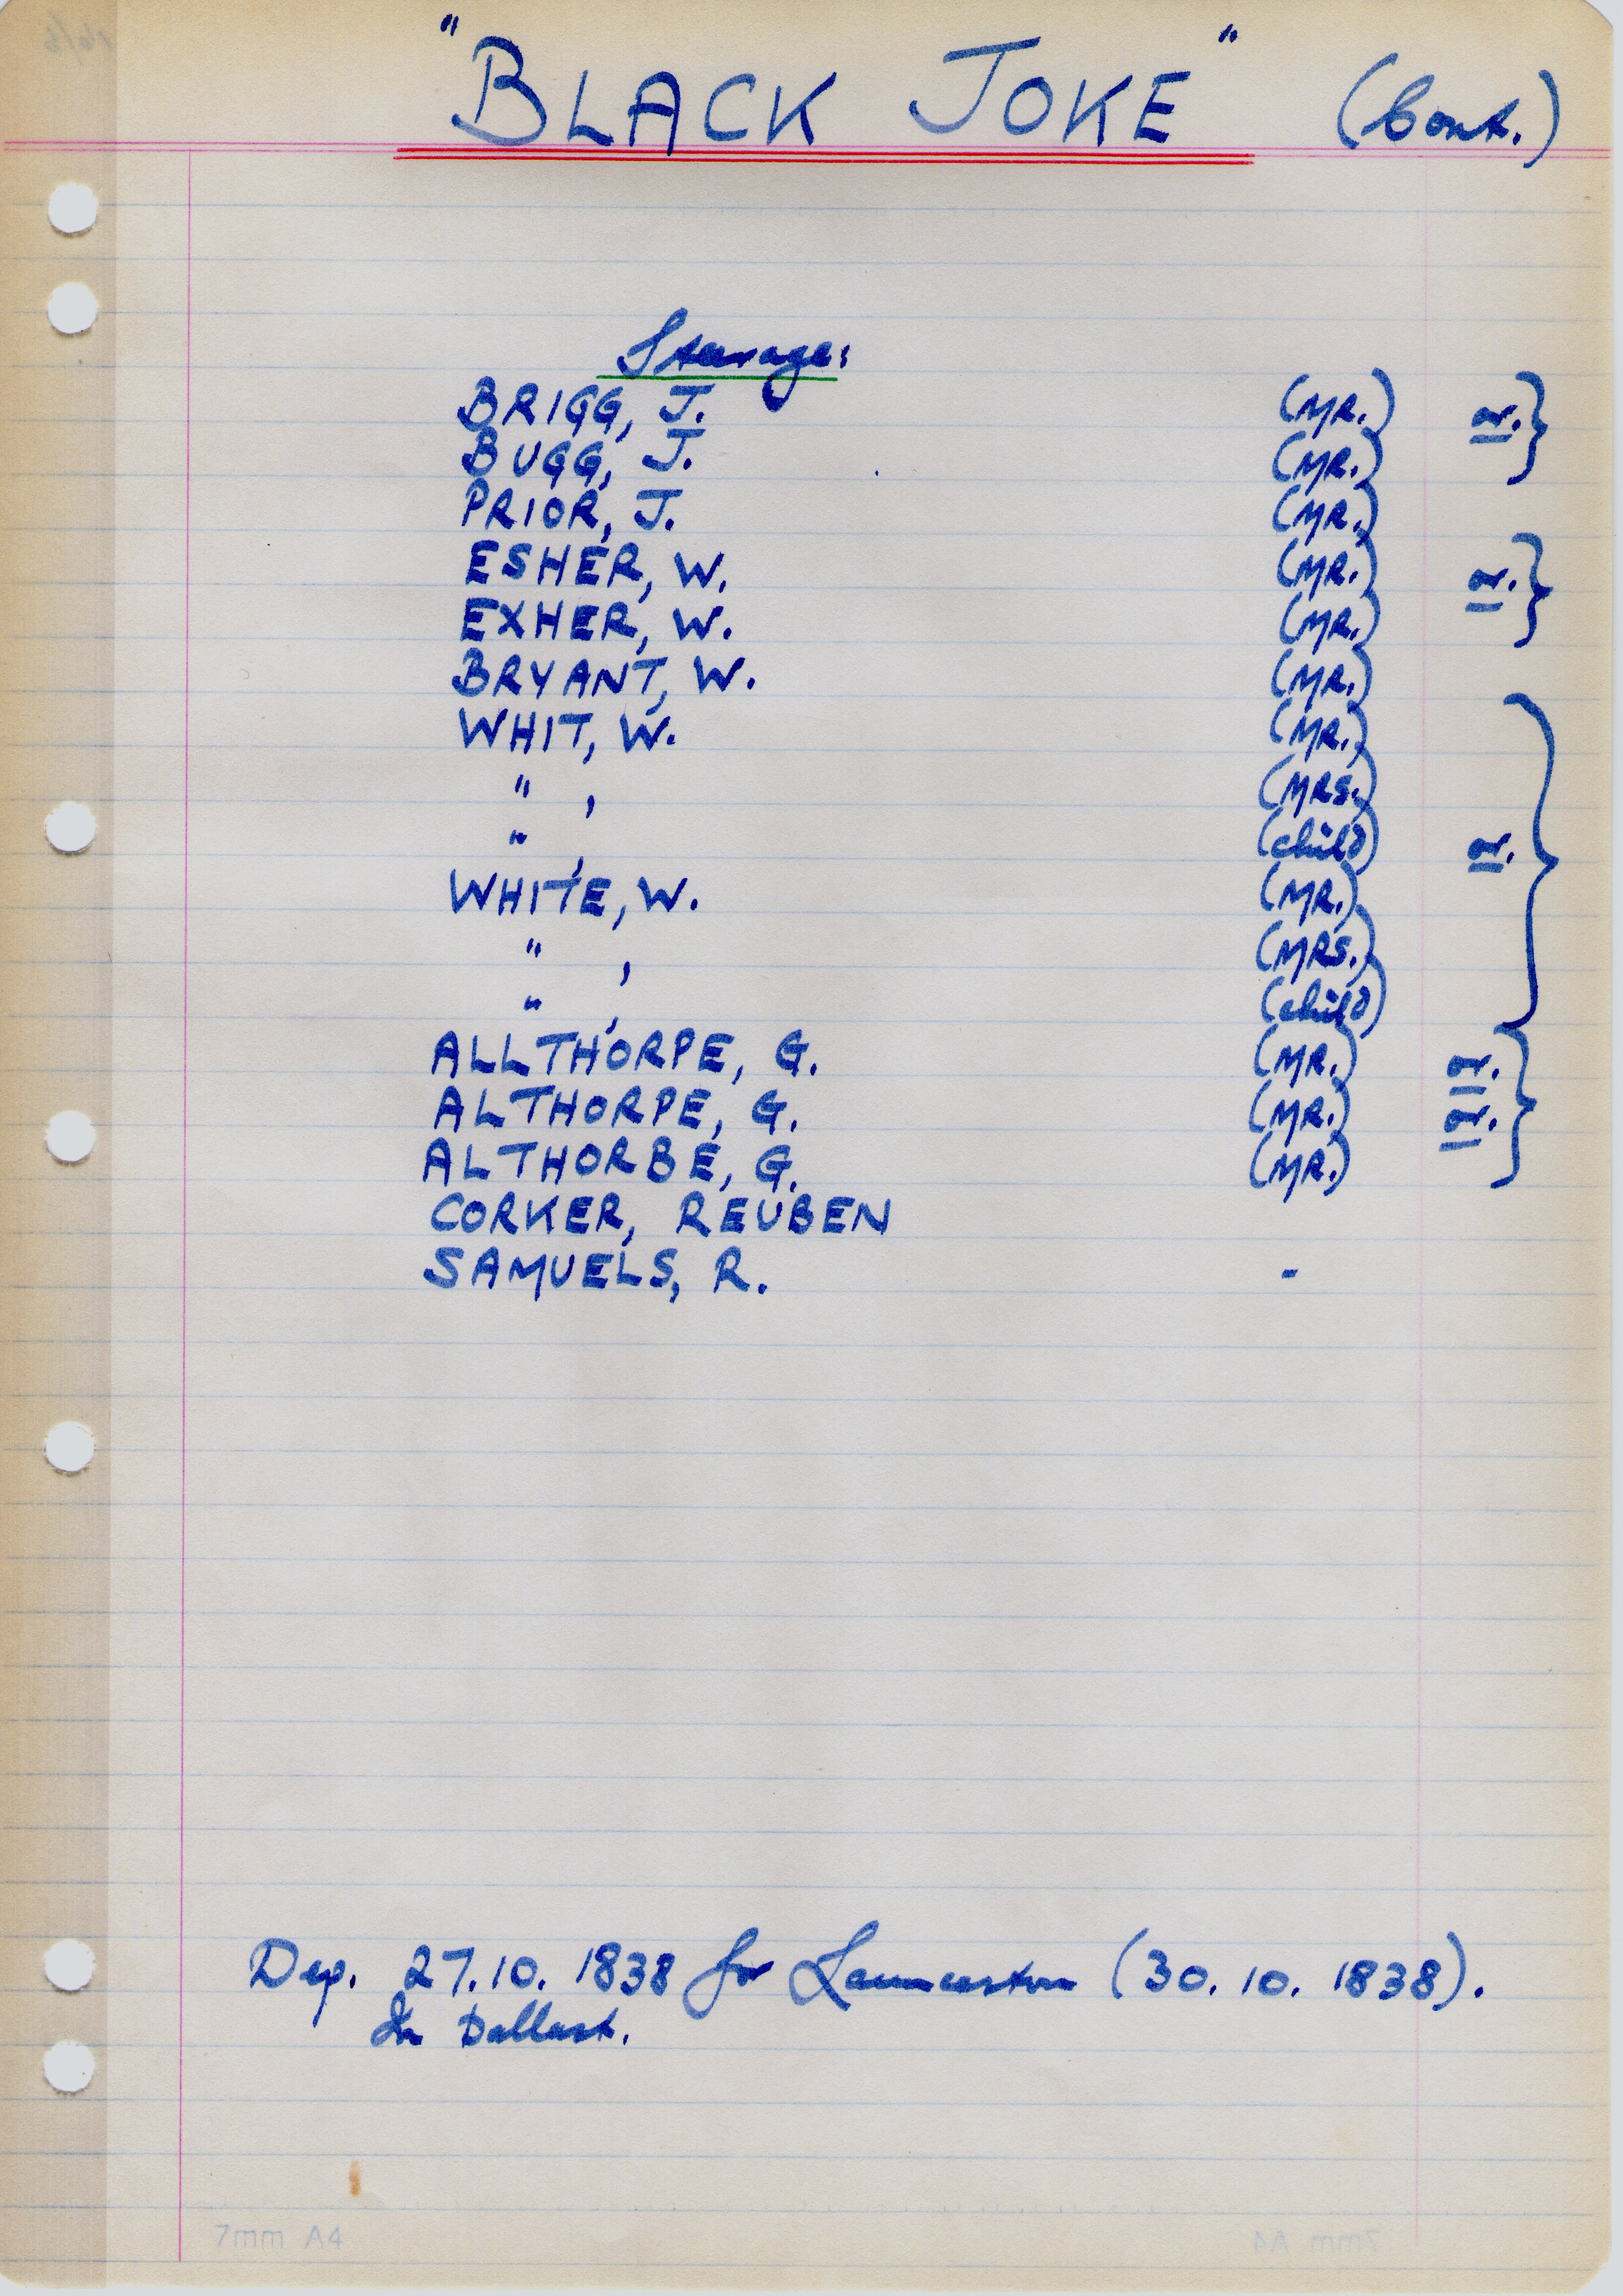 "BLACK JOKE" (Cont.)
Steerage:
BRIGG, J. (MR.) or. }
BUGG, J. (MR.)
PRIOR, J. (MR.)
ESHER, W. (MR.) or. }
EXHER, W. (MR.)
BRYANT, W. (MR.)
WHIT, W. (MR.)
" , (MRS.)
" , (child) or. }
WHITE, W. (MR.)
" , (MRS.)
" , (child)
ALLTHORPE, G. (MR.) or.
ALTHORPE, G. (MR.) or. }
ALTHORBE, G. (MR.)
CORKER, REUBEN
SAMUELS, R. -
Dep. 27.10.1838 for Launceston (30.10.1838).
In Ballast.
7mm A4